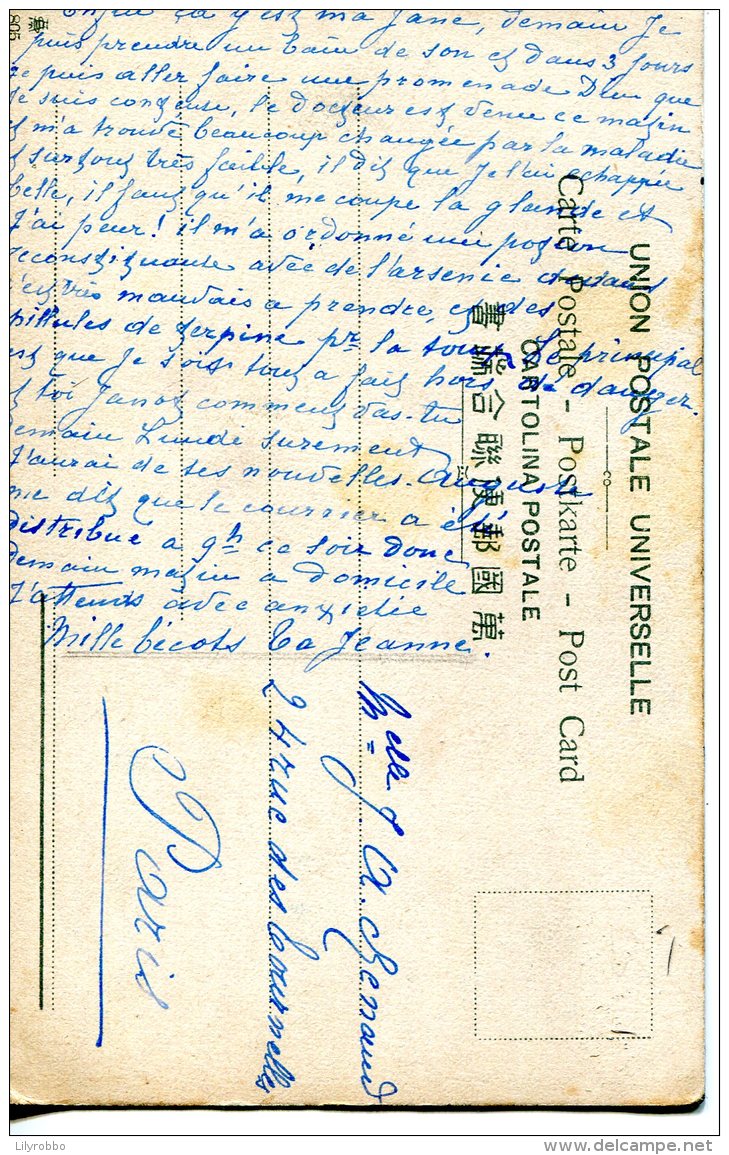 Enfin ça y est ma Jane, demain je
puis prendre un bain de son et dans 3 jours
je puis aller faire une promenade Dieu que
je suis contente, le docteur est venu ce matin
il m'a trouvé beaucoup changée par la maladie
et surtout très faible, il dit que je l'ai échappée
belle, il faut qu'il me coupe la glande et
j'ai peur! il m'a ordonné une potion
reconstituante avec de l'arsenic
c'est très mauvais a prendre, et des
pillules de terpine pr la toux Le principal
est que je sois tout a fait hors de danger.
et toi Janot comment vas-tu
demain Lundi surement
j'aurai de tes nouvelles. Auguste
me dit que le courrier a été
distribué a 9h ce soir donc
demain matin a domicile
J'attends avec anxiétée
Mille bécots Ta Jeanne.
UNION POSTALE UNIVERSELLE
Carte Postale - Postkarte - Post Card
CARTOLINA POSTALE
萬國郵便聯合端書
Melle J. A. Renaud
24 rue des Tournelles
Paris
805
Lilyrobbo
©delcampe.net